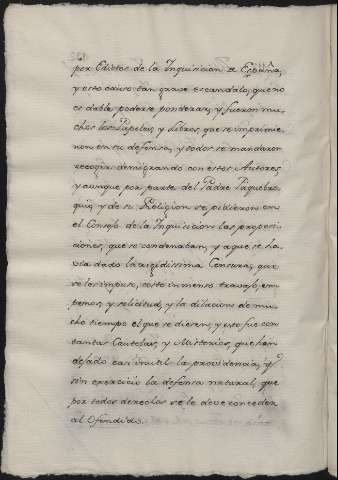 por Edictos de la Inquisicion de España,
y esto causò tan grave escandalo, que no
es dable poderse ponderar, y fueron mu-
chos los Papeles, y Libros que se imprimie-
ron en su defensa, y todos se mandaron
recoger denigrando con estos Autores
y aunque por parte del Padre Papebro-
quio, y de su Religion se pidieron en
el Consejo de la Inquisicion las proposi-
ciones, que se condenaban, y a que se ha-
via dado la rigidissima Censura, que
se les impuso, costò inmenso travajo, em-
peños, y solicitud, y la dilacion de mu-
cho tiempo el que se diesen, y esto fue con
tantas Cautelas, y Misterios, que han
dejado casi inutil la providencia, y
sin exercicio la defensa natural, que
por todos derechos se le deve conceder
al Ofendido.